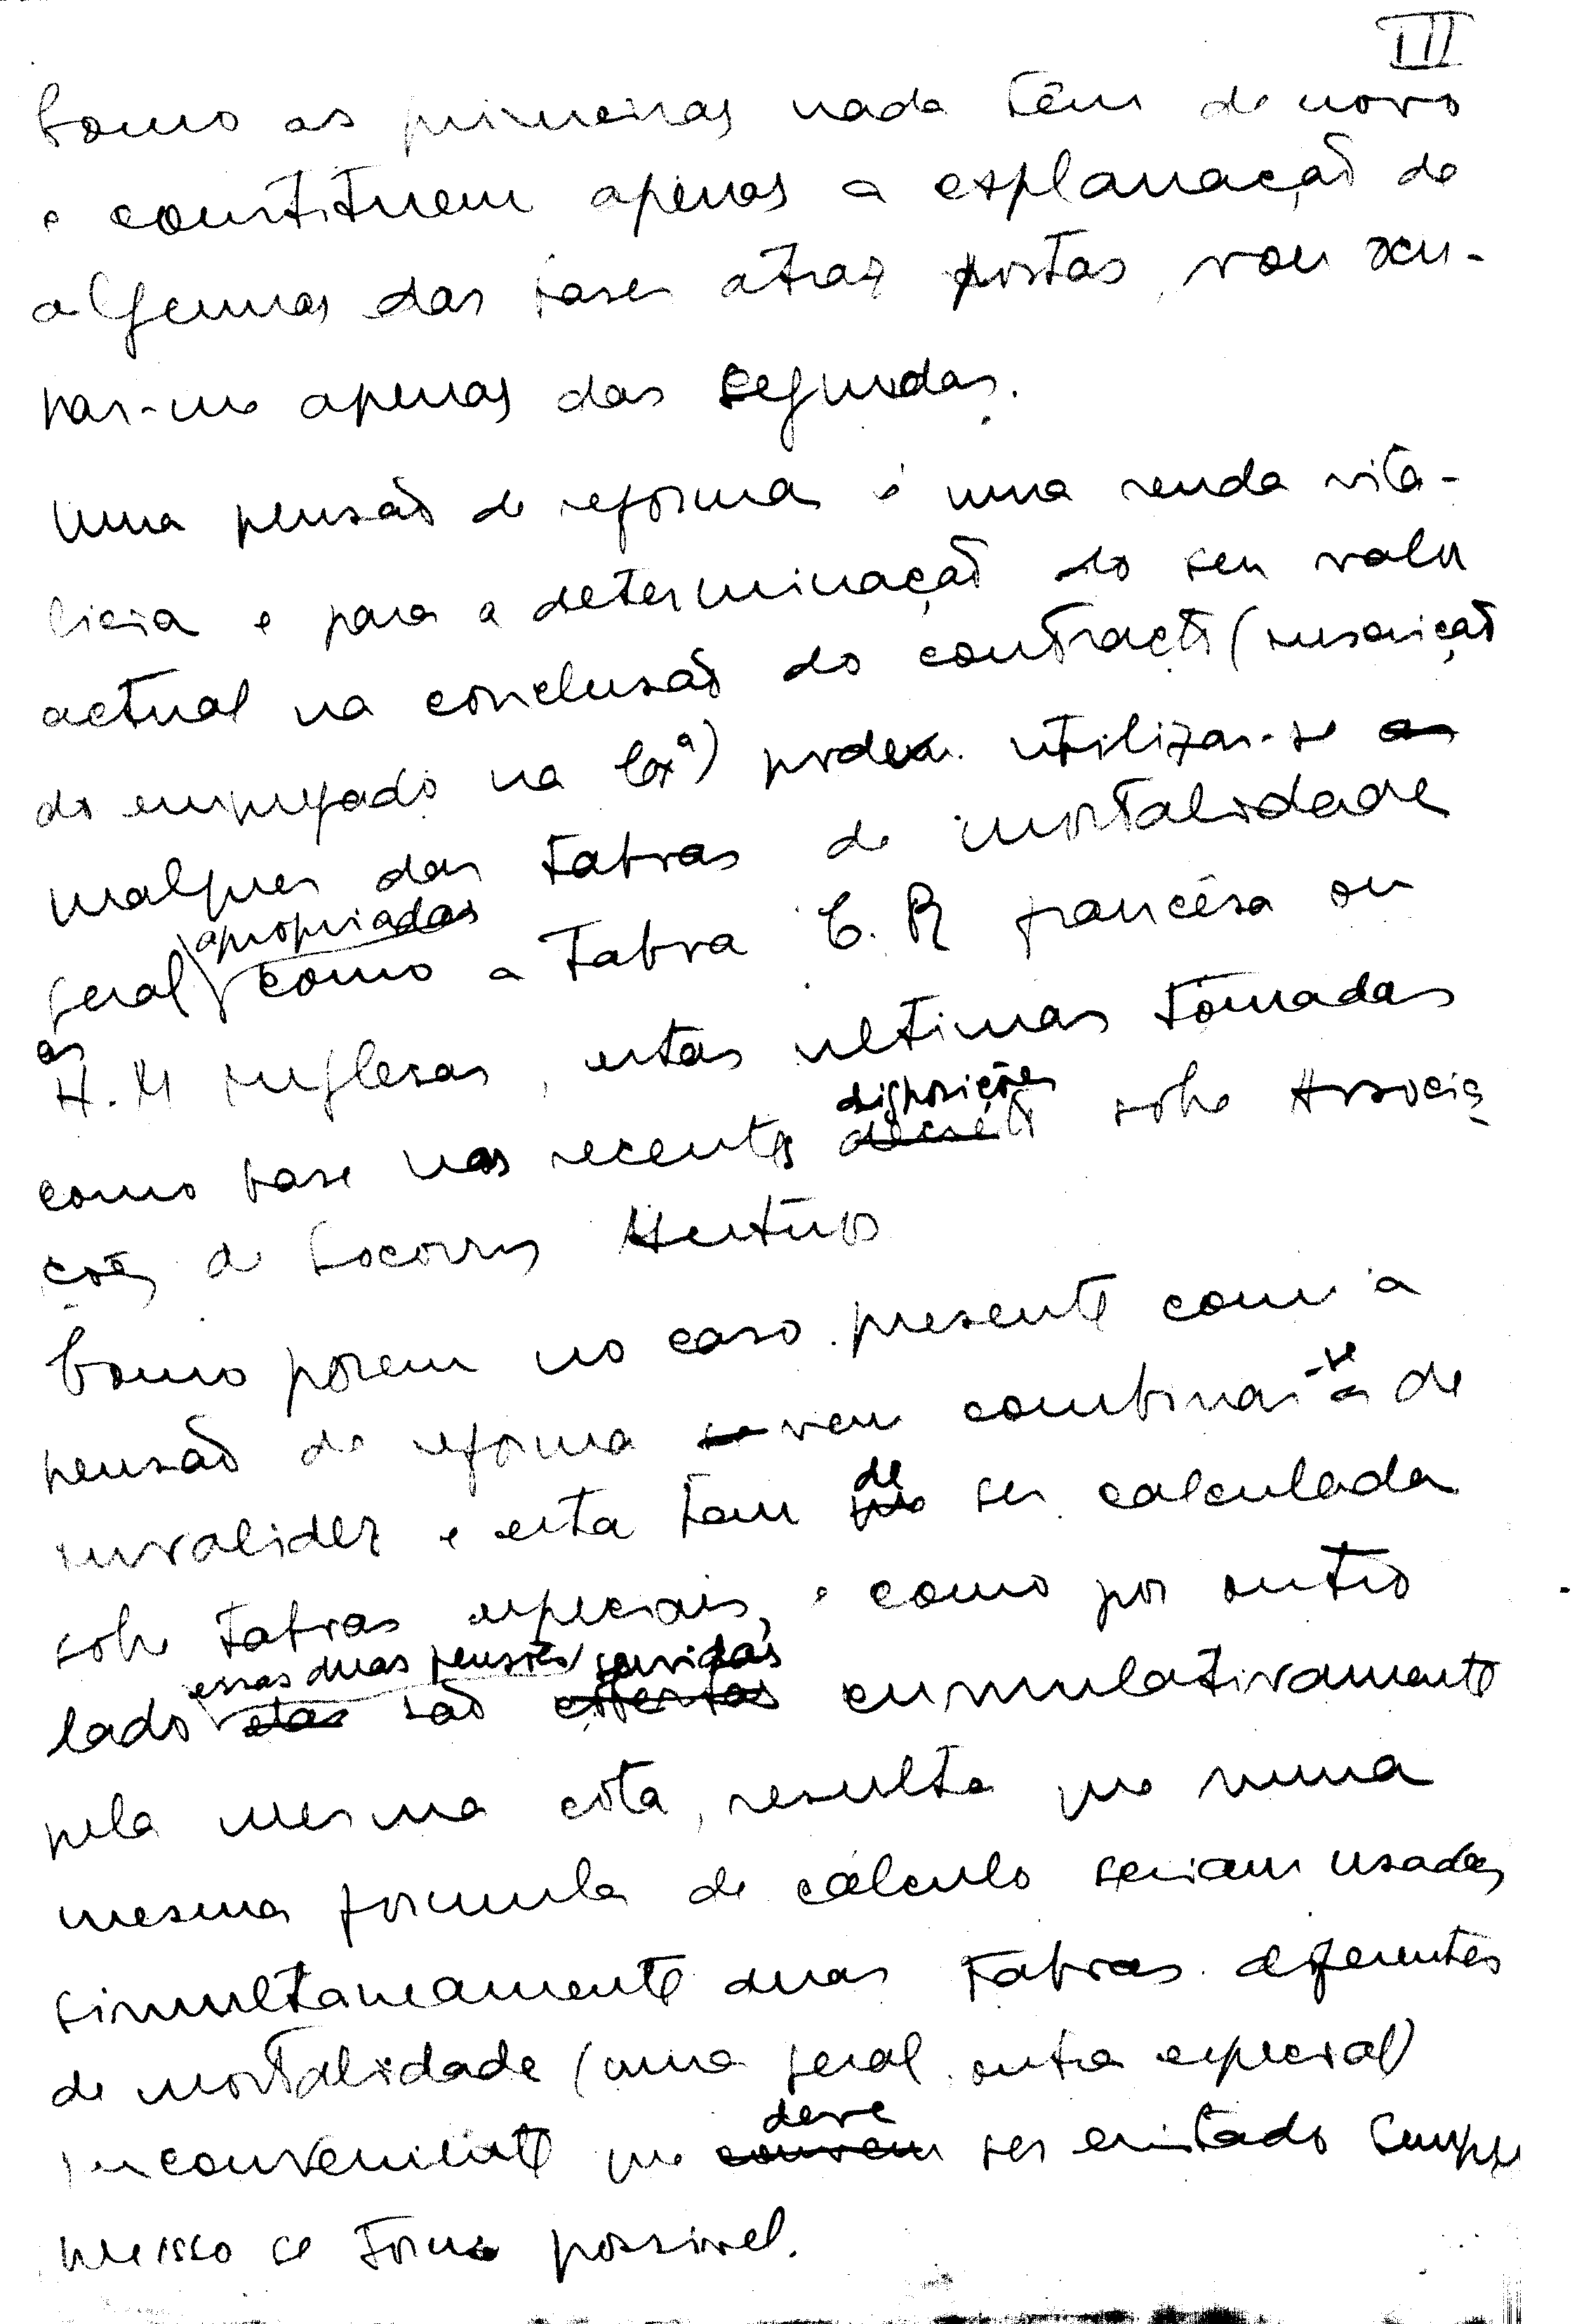 III
Como as primeiras nada têm de novo
e constituem apenas a explanação de
algumas das bases atraz postas, vou ocu-
par-me apenas das segundas.
Uma pensão de reforma é uma renda vita-
licia e para a determinação do seu valor
actual na conclusão do contracto (inscrição
do empregado na Cxª) podem utilizar-se as
qualquer das tabuas de mortalidade
apropriadas
geral como a Tabua C. R francêsa ou
as
H. M inglesas, estas ultimas tomadas
disposições
como base nas recentes decreto sobre Associa
ções de Socorros Mutuos
Como porem no caso presente com a
-se
pensão de reforma se vem combinar a de
de
invalidez e esta tem que ser calculada
sobre Tabuas especiais, e como por outro
essas duas pensões servidas
lado estas são ofertas cumulativamente
pela mesma cóta, resulta que numa
mesma formula de cálculo seriam usadas
simultaneamente duas Tabuas diferentes
de mortalidade (uma geral outra especial)
deve
inconveniente que convem ser evitado sempre
que isso se torne possivel.